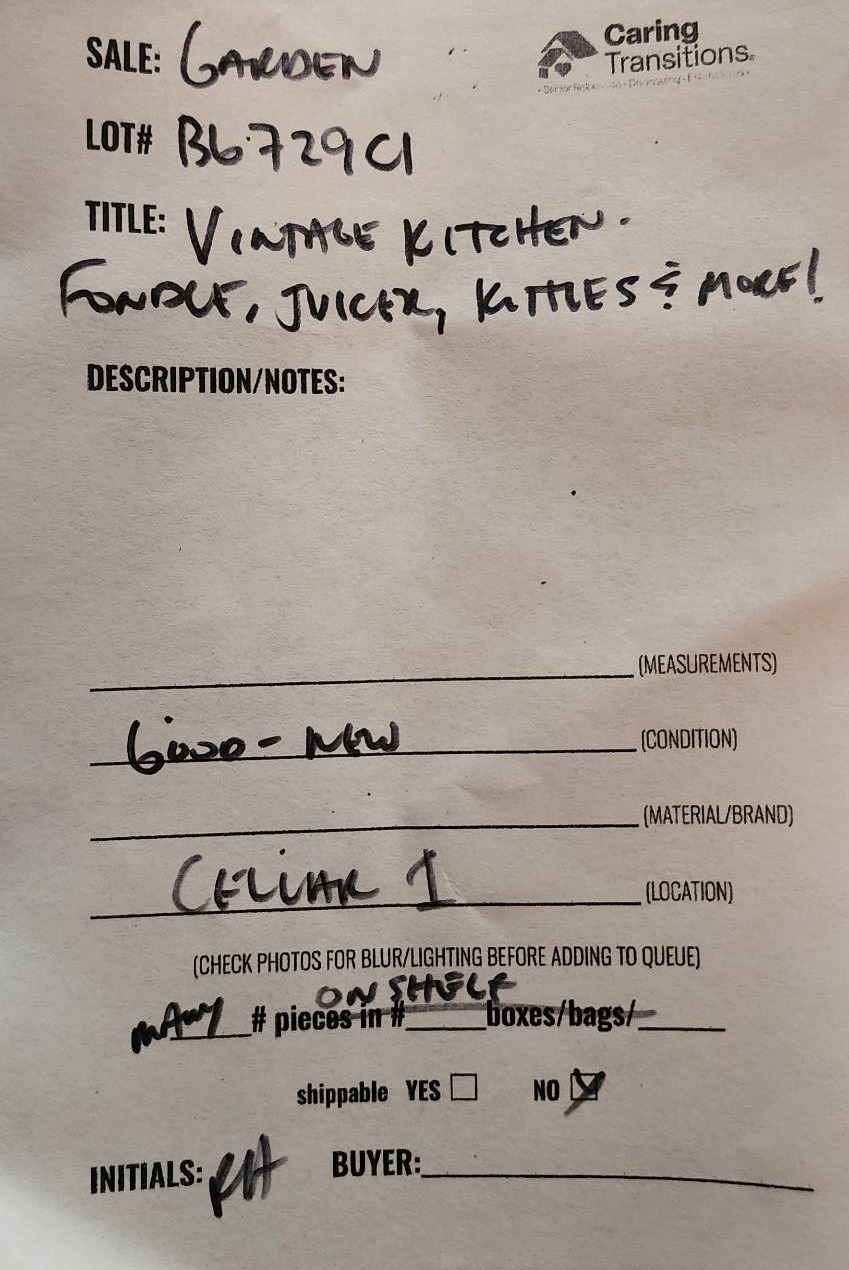 SALE: GARDEN
Caring
Transitions®
LOT# B6729C1
TITLE: VINTAGE KITCHEN.
FONDUE, JUICER, KITTLES & MORE!
DESCRIPTION/NOTES:
(MEASUREMENTS)
GOOD - NEW (CONDITION)
(MATERIAL/BRAND)
CELLAR 1 (LOCATION)
(CHECK PHOTOS FOR BLUR/LIGHTING BEFORE ADDING TO QUEUE)
ON SHELF
MANY # pieces in #_____boxes/bags/_____
shippable YES NO
INITIALS: RH BUYER: